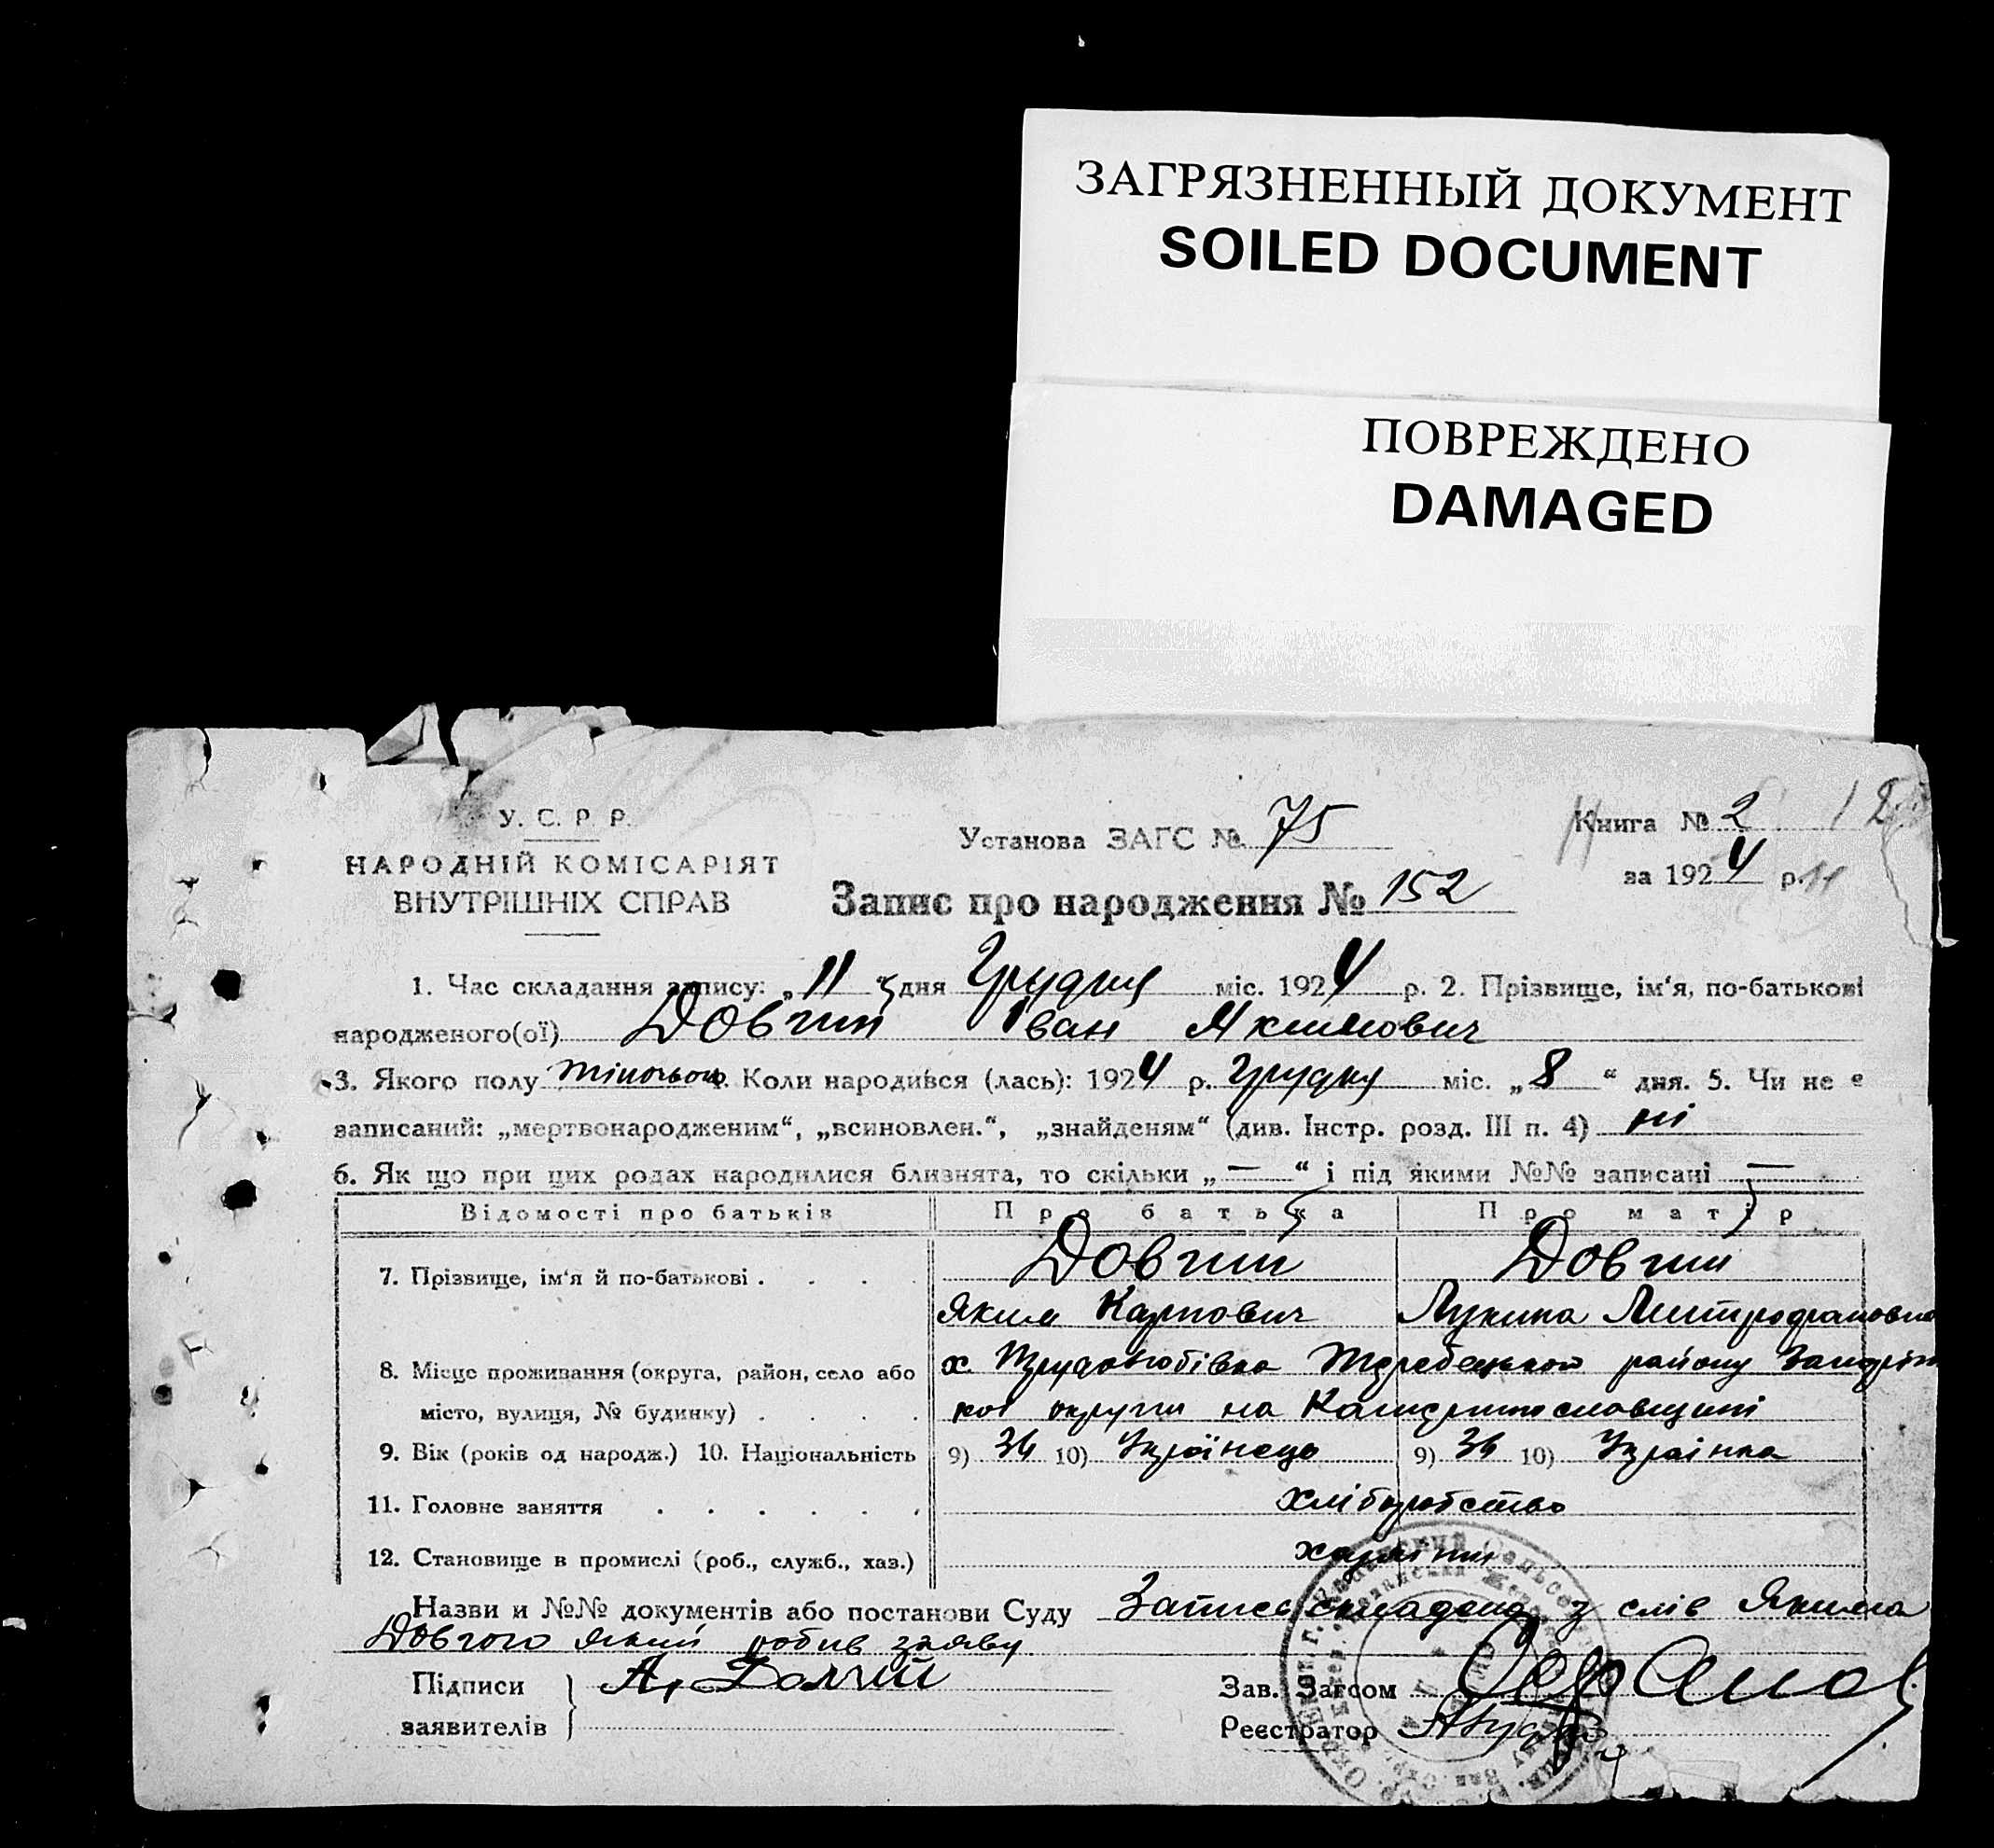 ЗАГРЯЗНЕННЫЙ ДОКУМЕНТ
SOILED DOCUMENT
ПОВРЕЖДЕНО
DAMAGED
У. С. Р. Р.
НАРОДНІЙ КОМІСАРІЯТ
ВНУТРІШНІХ СПРАВ
Установа ЗАГС № 75
Запис про народження № 152
Книга № 2
за 1924 р.
1. Час складання запису: „11“ дня Грудня міс. 1924 р. 2. Прізвище, ім‘я, по-батькові
народженого(ої) Довгий Іван Якимович
3. Якого полу 4. Коли народився (лась): 1924 р. Грудну міс. „8“ дня. 5. Чи не є
записаний: „мертвонародженим“, „всиновлен.“, „знайденям“ (див. Інстр. розд. III п. 4) ні
6. Як що при цих родах народилися близнята, то скільки „—“ і під якими №№ записані —
Відомості про батьків Про батька Про матір
7. Прізвище, ім‘я й по-батькові . . . . Довгий Довгий
Яким Карпович Лукина
8. Місце проживання (округа, район, село або х. району
місто, вулиця, № будинку) . . . . округи на
9. Вік (років од народж.) 10. Національність 9) 34 10) Українець 9) 34 10) Українка
11. Головне заняття . . . . . . хліборобство
12. Становище в промислі (роб., служб., хаз.)
Назви и №№ документів або постанови Суду Запис складено з слів Якима
Довгого який робив заяву
Підписи
заявителів
А. Долгий
Зав. Загсом
Реєстратор